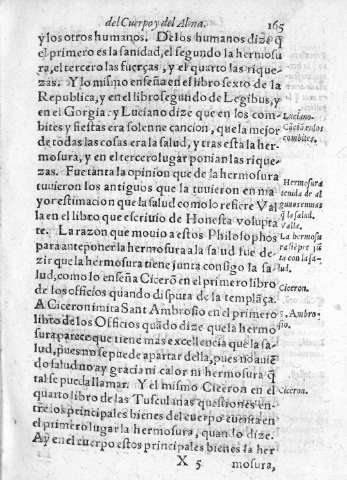 del Cuerpo y del Alma. 165
y los otros humanos. De los humanos dize q̃
el primero es la sanidad, el segundo la hermosu
ra, el tercero las fuerças, y el quarto las rique-
zas. Y lo mismo enseña en el libro sexto de la
Republica, y en el libro segundo de Legibus, y
en el Gorgia: y Luciano dize que en los com-
bites y fiestas era solenne cancion, que la mejor
de todas las cosas era la salud, y tras esta la her-
mosura, y en el tercero lugar ponian las rique-
zas. Fue tanta la opinion que de la hermosura
tuuieron los antiguos que la tuuieron en ma
yor estimacion que la salud como lo refiere Val
la en el libro que escriuio de Honesta volupta
te. La razon que mouio a estos Philosophos
para anteponer la hermosura a la salud fue de-
zir que la hermosura tiene junta consigo la sa-
lud, como lo enseña Cicerõ en el primero libro
de los officios quando disputa de la templãça.
A Ciceron imita Sant Ambrosio en el primero
libro de los Officios quãdo dize que la hermo
sura parece que tiene mas excellencia que la sa-
lud, pues no se puede apartar della, pues no auiẽ
do salud no ay gracia ni calor ni hermosura q̃
tal se pueda llamar. Y el mismo Ciceron en el
quarto libro de las Tusculanas questiones en-
tre los principales bienes del cuerpo cuenta en
el primero lugar la hermosura, quando dize.
Ay en el cuerpo estos principales bienes la her
X 5 mosura,
Luciano.
Cãcio en los
combites.
Hermosura
tenida de al
gunos en mas
q̃ la salud.
Valla.
La hermosu
ra siẽpre jũ
ta con la sa-
lud.
Ciceron.
S. Ambro-
sio.
Ciceron.